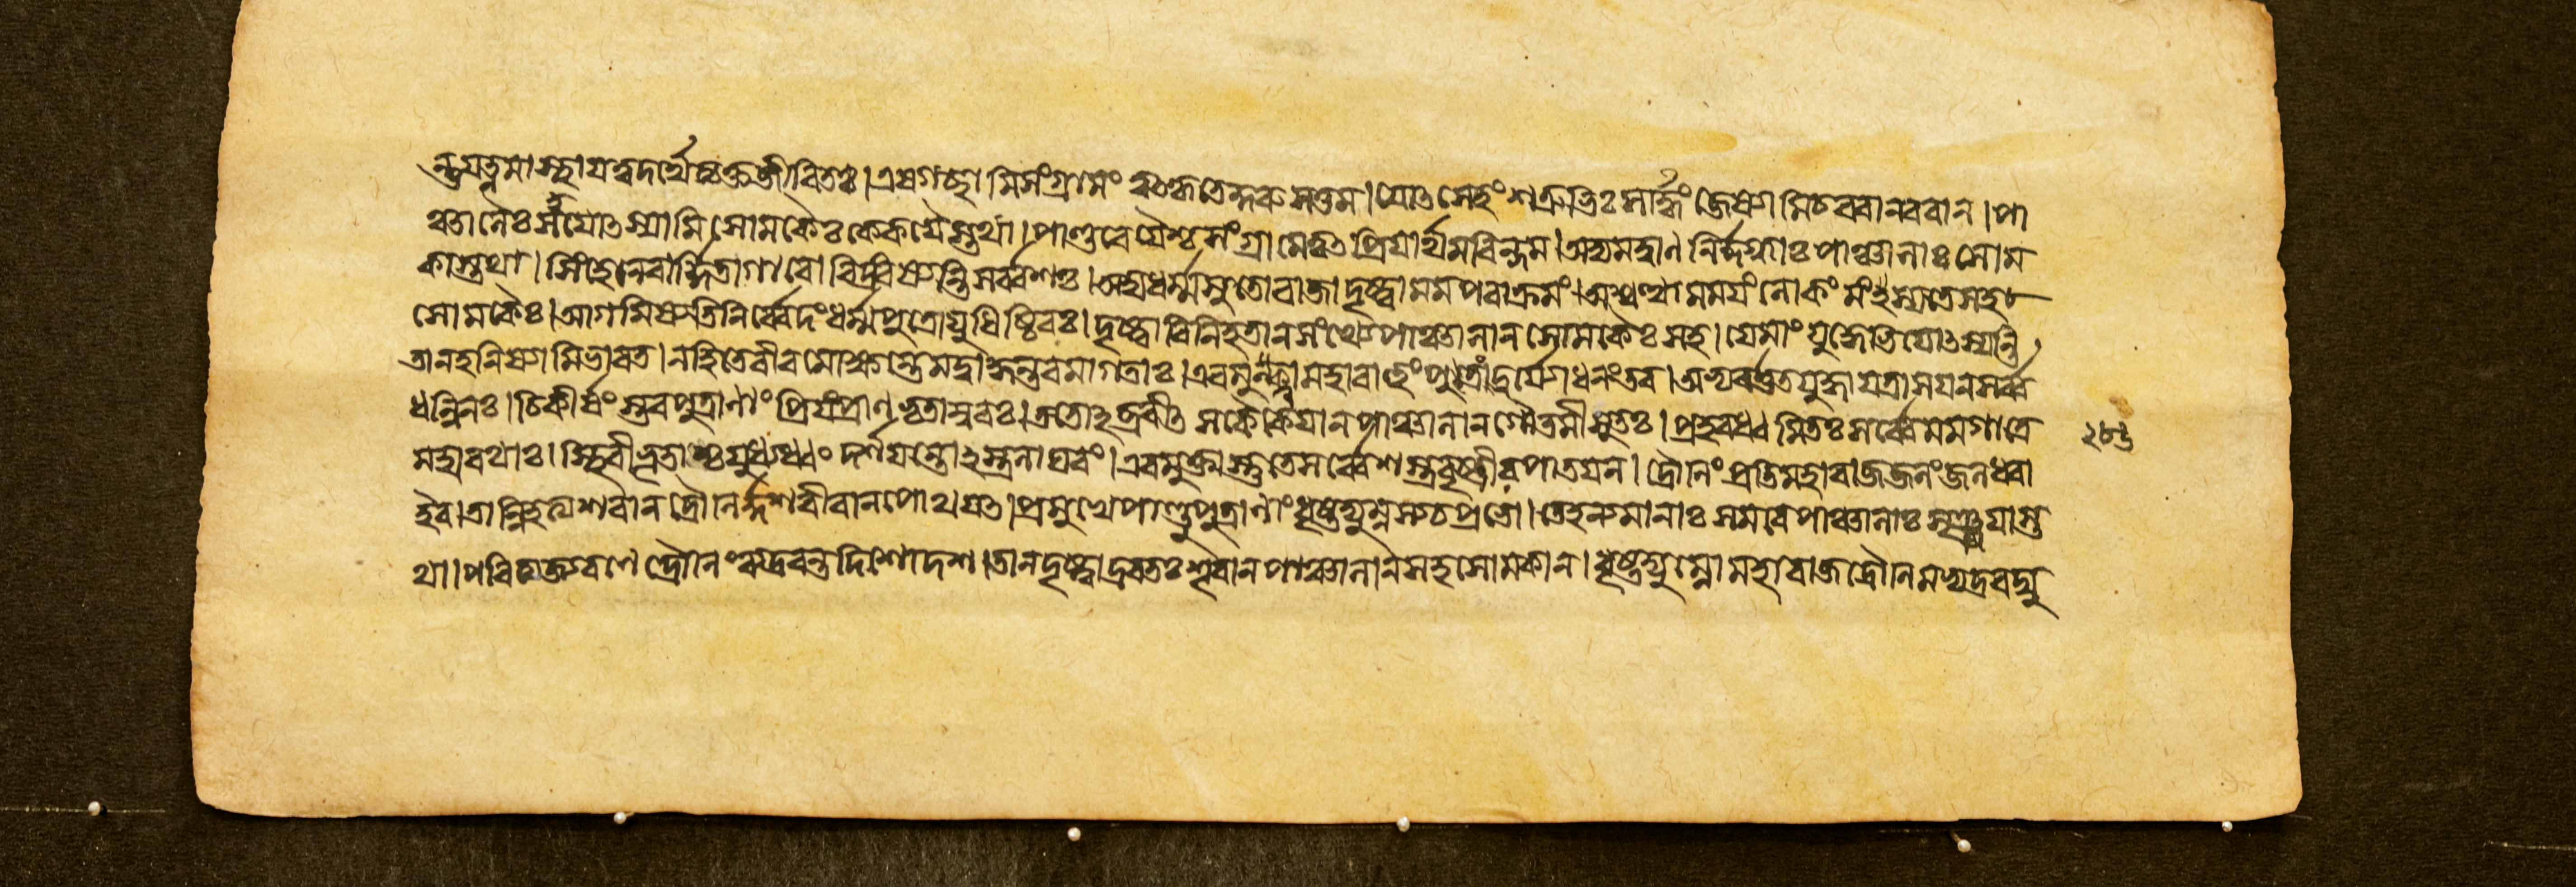 ন্তুযত্নমাস্থাযত্বদর্থেত্যক্তজীবিতঃ।এষগচ্ছামিসংগ্রামং ত্বৎকৃতেকুরুসত্তম।যোৎস্যেহংশত্রুভিঃসার্দ্ধংজেষ্যামিচবরানবরান।পা
ঞ্চালৈঃসহযোৎস্যামিসোমকৈঃকেকযৈস্তথা।পাণ্ডবেযৈশ্চসংগ্রামেত্বৎপ্রিযার্থমরিন্দম।অদ্যমদ্বাণনির্দ্দগ্ধাঃপাঞ্চালাঃসোম
কাস্তথা।সিংহেনেবার্দ্দিতাগাবো বিদ্রবিষ্যন্তিসর্ব্বশঃ।অদ্যধর্ম্মসুতোরাজাদৃষ্ট্বামমপরাক্রমং।অশ্বত্থামমযংলোকংমংস্যতেসহ
সোমকৈঃ।আগমিষ্যতিনির্ব্বেদংধর্ম্মপুত্রোযুধিষ্ঠিরঃ।দৃষ্ট্বাবিনিহতানসংখ্যেপাঞ্চালানসোমকৈঃসহ।যেমাংযুদ্ধেভিযোৎস্যন্তি
তানহনিষ্যামিভারত।নহিতেবীরমোক্ষ্যন্তেমদ্বাহ্বন্তরমাগতাঃ।এবমুক্ত্বামহাবাহুংপুত্রং দুর্য্যোধনংতব।অভ্যবর্ত্ততযুদ্ধাযত্রাসযনসর্ব্ব
ধন্বিনঃ।চিকীর্ষংস্তবপুত্রাণাং প্রিযংপ্রাণভৃতাম্বরঃ।ততোঽব্রবীৎ সকৈকেযানপাঞ্চালানগৌতমীসুতঃ।প্রহরধ্বমিতঃসর্ব্বেমমগাত্রে
মহারথাঃ।স্থিরীভূতাশ্চযুধ্যধ্বং দর্শযন্তোঽস্ত্রলাঘবং।এবমুক্তাস্তুতেসর্ব্বেশস্ত্রবৃষ্টীরপাতযন।দ্রৌণিংপ্রতিমহারাজজলংজলধরা
ইব।তান্নিহত্যশরানদ্রৌণির্দ্দশবীরানপোথযৎ।প্রমুখেপাণ্ডুপুত্রাণাংধৃষ্টদ্যুম্নস্যচপ্রভো।তেহন্যমানাঃসমরেপাঞ্চালাঃসৃঞ্জযাস্ত
থা।পরিত্যজ্যরণে দ্রৌণিংব্যদ্রবন্তদিশোদশ।তানদৃষ্ট্বাদ্রবতঃশূরানপাঞ্চালানসহসোমকান।ধৃষ্টদ্যুম্নোমহারাজদ্রৌণিমভ্যদ্রবদ্যু